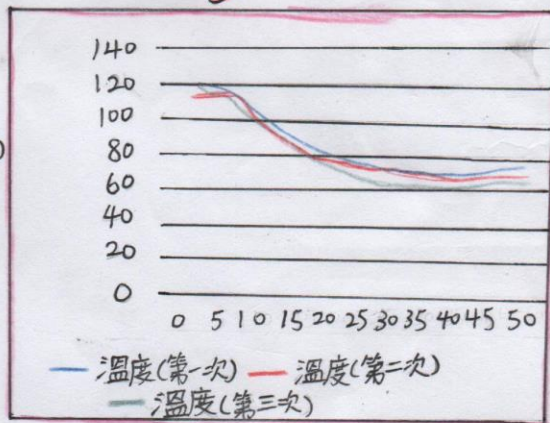 140
120
100
80
60
40
20
0
0 5 10 15 20 25 30 35 40 45 50
溫度(第一次) 溫度(第二次)
溫度(第三次)